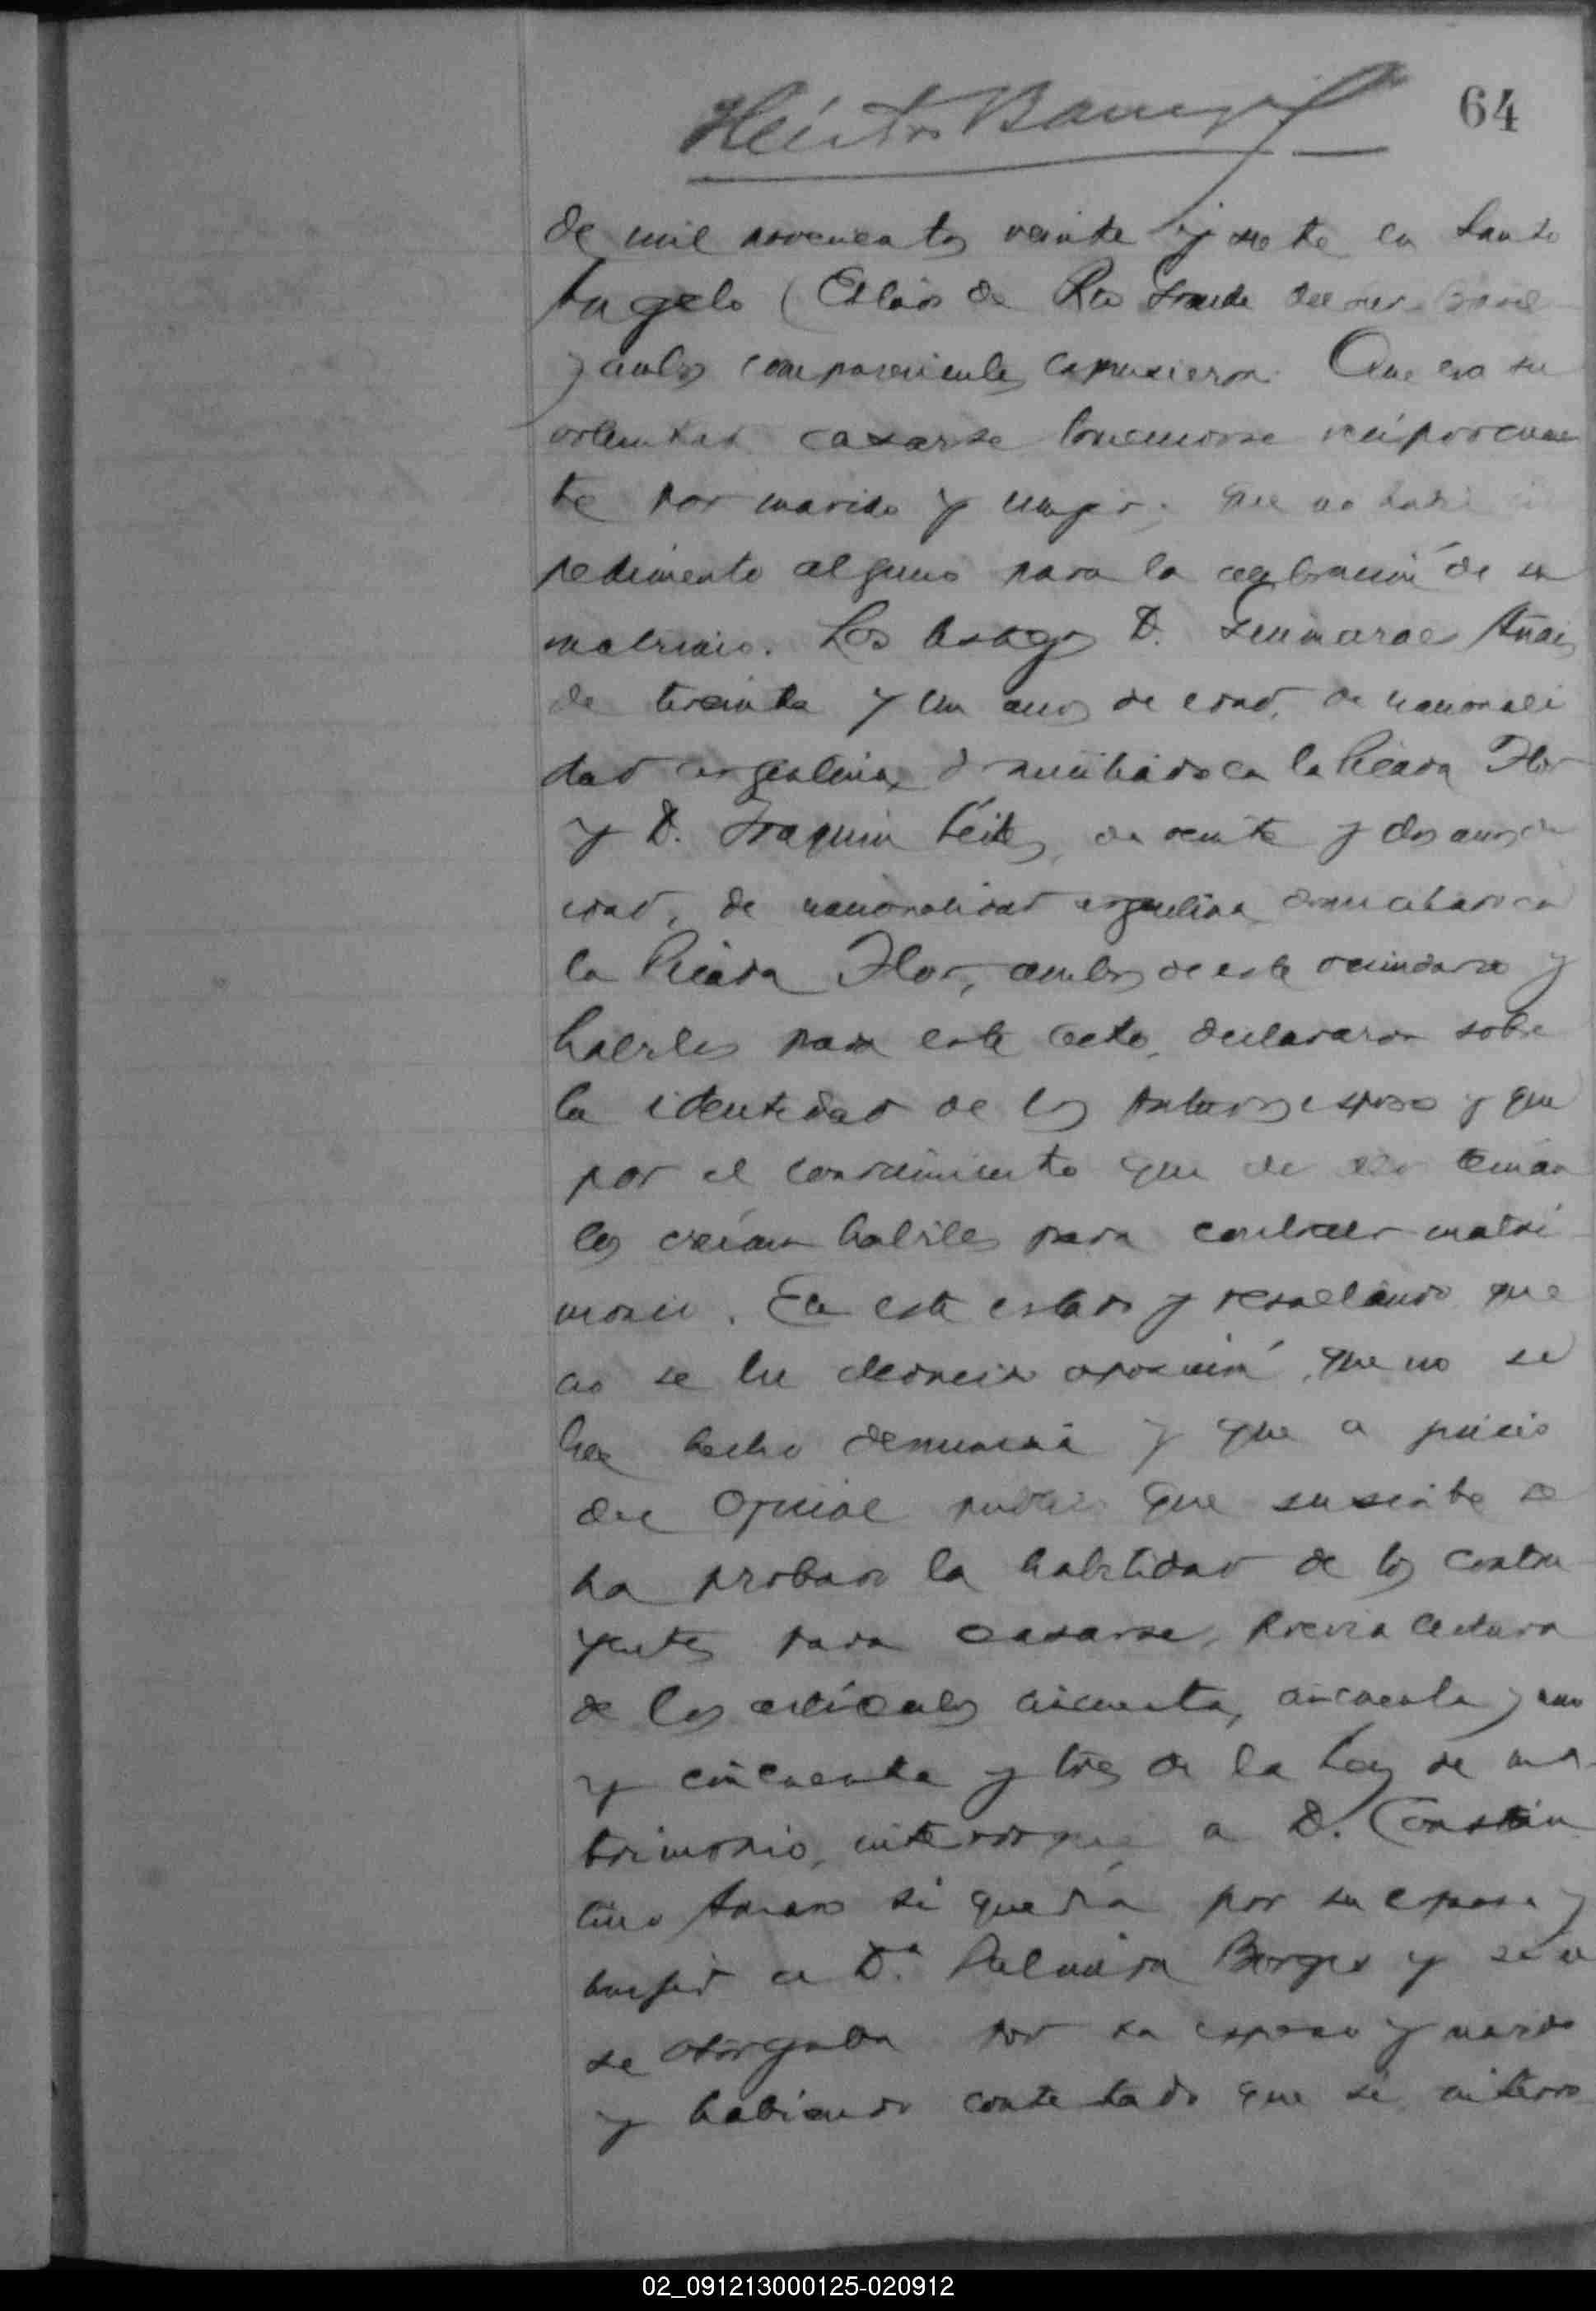 64
Héctor Barreyro
de mil novecientos veinte y siete en Santo
Angelo (Estado de Rio Grande del Sur Brasil
y ambos comparecientes expusieron: Que era su
voluntad casarse tomandose reciprocamen
te por marido y mujer; que no habia im
pedimento alguno para la celebracion de su
matrimio. Los testigos D.
de treinta y un años de edad, de nacionali
dad argentina, domiciliado en la Picada Flor
y D. Joaquin de veinte y dos años de
edad, de nacionalidad argentina domiciliado en
la Picada Flor, ambos de este vecindario y
habiles para este acto, declararon sobre
la identidad de los futuros esposos y que
por el conocimiento que de ellos tenian
los creian habiles para contraer matri
monio. En este estado y resultando que
no se ha deducido oposicion, que no se
ha hecho denuncia y que a juicio
del Oficial publico que suscribe se
ha probado la habilidad de los contra
yentes para casarse, previa lectura
de los articulos cincuenta, cincuenta y uno
y cincuenta y tres de la Ley de ma
trimonio, interrogué a D. Constan
tino si queria por su esposa y
mujer a Dª. Palmira Borges y si a
se otorgaba por su esposo y marido
y habiendo contestado que si interro
02_091213000125-020912